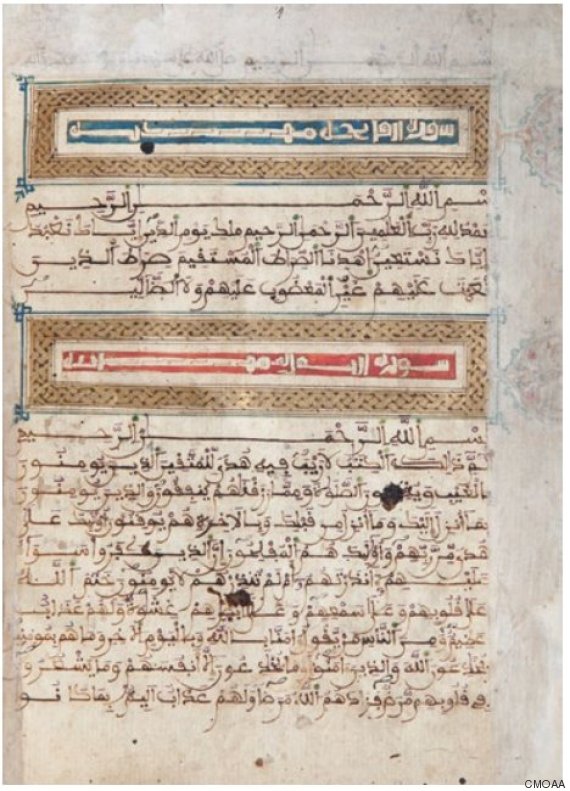 بسم الله الرحمن الرحيم صلى الله على
سورة
بسم الله الرحمن الرحيم
الحمد لله رب العلمين الرحمن الرحيم ملك يوم الدين اياك نعبد
واياك نستعين اهدنا الصراط المستقيم صراط الذين
انعمت عليهم غير المغضوب عليهم ولا الضالين
سورة
بسم الله الرحمن الرحيم
الم ذلك الكتب لا ريب فيه هدى للمتقين الذين يومنون
بالغيب ويقيمون الصلوة ومما رزقنهم ينفقون والذين يومنون
بما انزل اليك وما انزل من قبلك وبالاخرة هم يوقنون اولئك على
هدى من ربهم واولئك هم المفلحون ان الذين كفروا سوا
عليهم انذرتهم ام لم تنذرهم لا يومنون ختم الله
على قلوبهم وعلى سمعهم وعلى ابصرهم غشوة ولهم عذاب
عظيم ومن الناس من يقول امنا بالله وباليوم الاخر وما هم بمومنين
يخدعون الله والذين امنوا وما يخدعون الا انفسهم وما يشعرون
في قلوبهم مرض فزادهم الله مرضا ولهم عذاب اليم بما كانوا
CMOAA